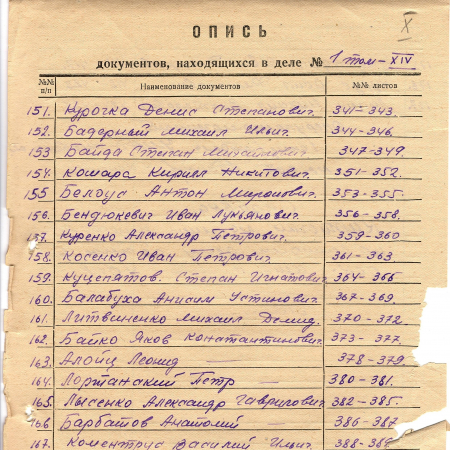 X
ОПИСЬ
документов, находящихся в деле № 1 том-XIV
№№ п/п Наименование документов №№ листов
151. Курочка Денис Степанович. 341-343.
152. Бадарный Михаил Ильич. 344-346.
153 Байда Степан Михайлович. 347-349.
154. Комара Кирилл Никитович. 351-352.
155 Белоус Антон Миронович. 353-355.
156. Бендюкевич Иван Лукьянович. 356-358.
157. Куренко Александр Петрович. 359-360
158. Косенко Иван Петрович. 361-363.
159. Куцепятов. Степан Игнатович. 364-366
160. Балабуха Анисим Устинович. 367-369.
161. Литвиненко Михаил Демид. 370-372.
162. Байко Яков Константинович. 373-377.
163. Алойц Леонид 378-379.
164. Лоржанский Петр — 380-381.
165. Лысенко Александр Гаврилович. 382-385.
166 Барбатов Анатолий — 386-387
167. Коментрус Василий Ильич. 388-389